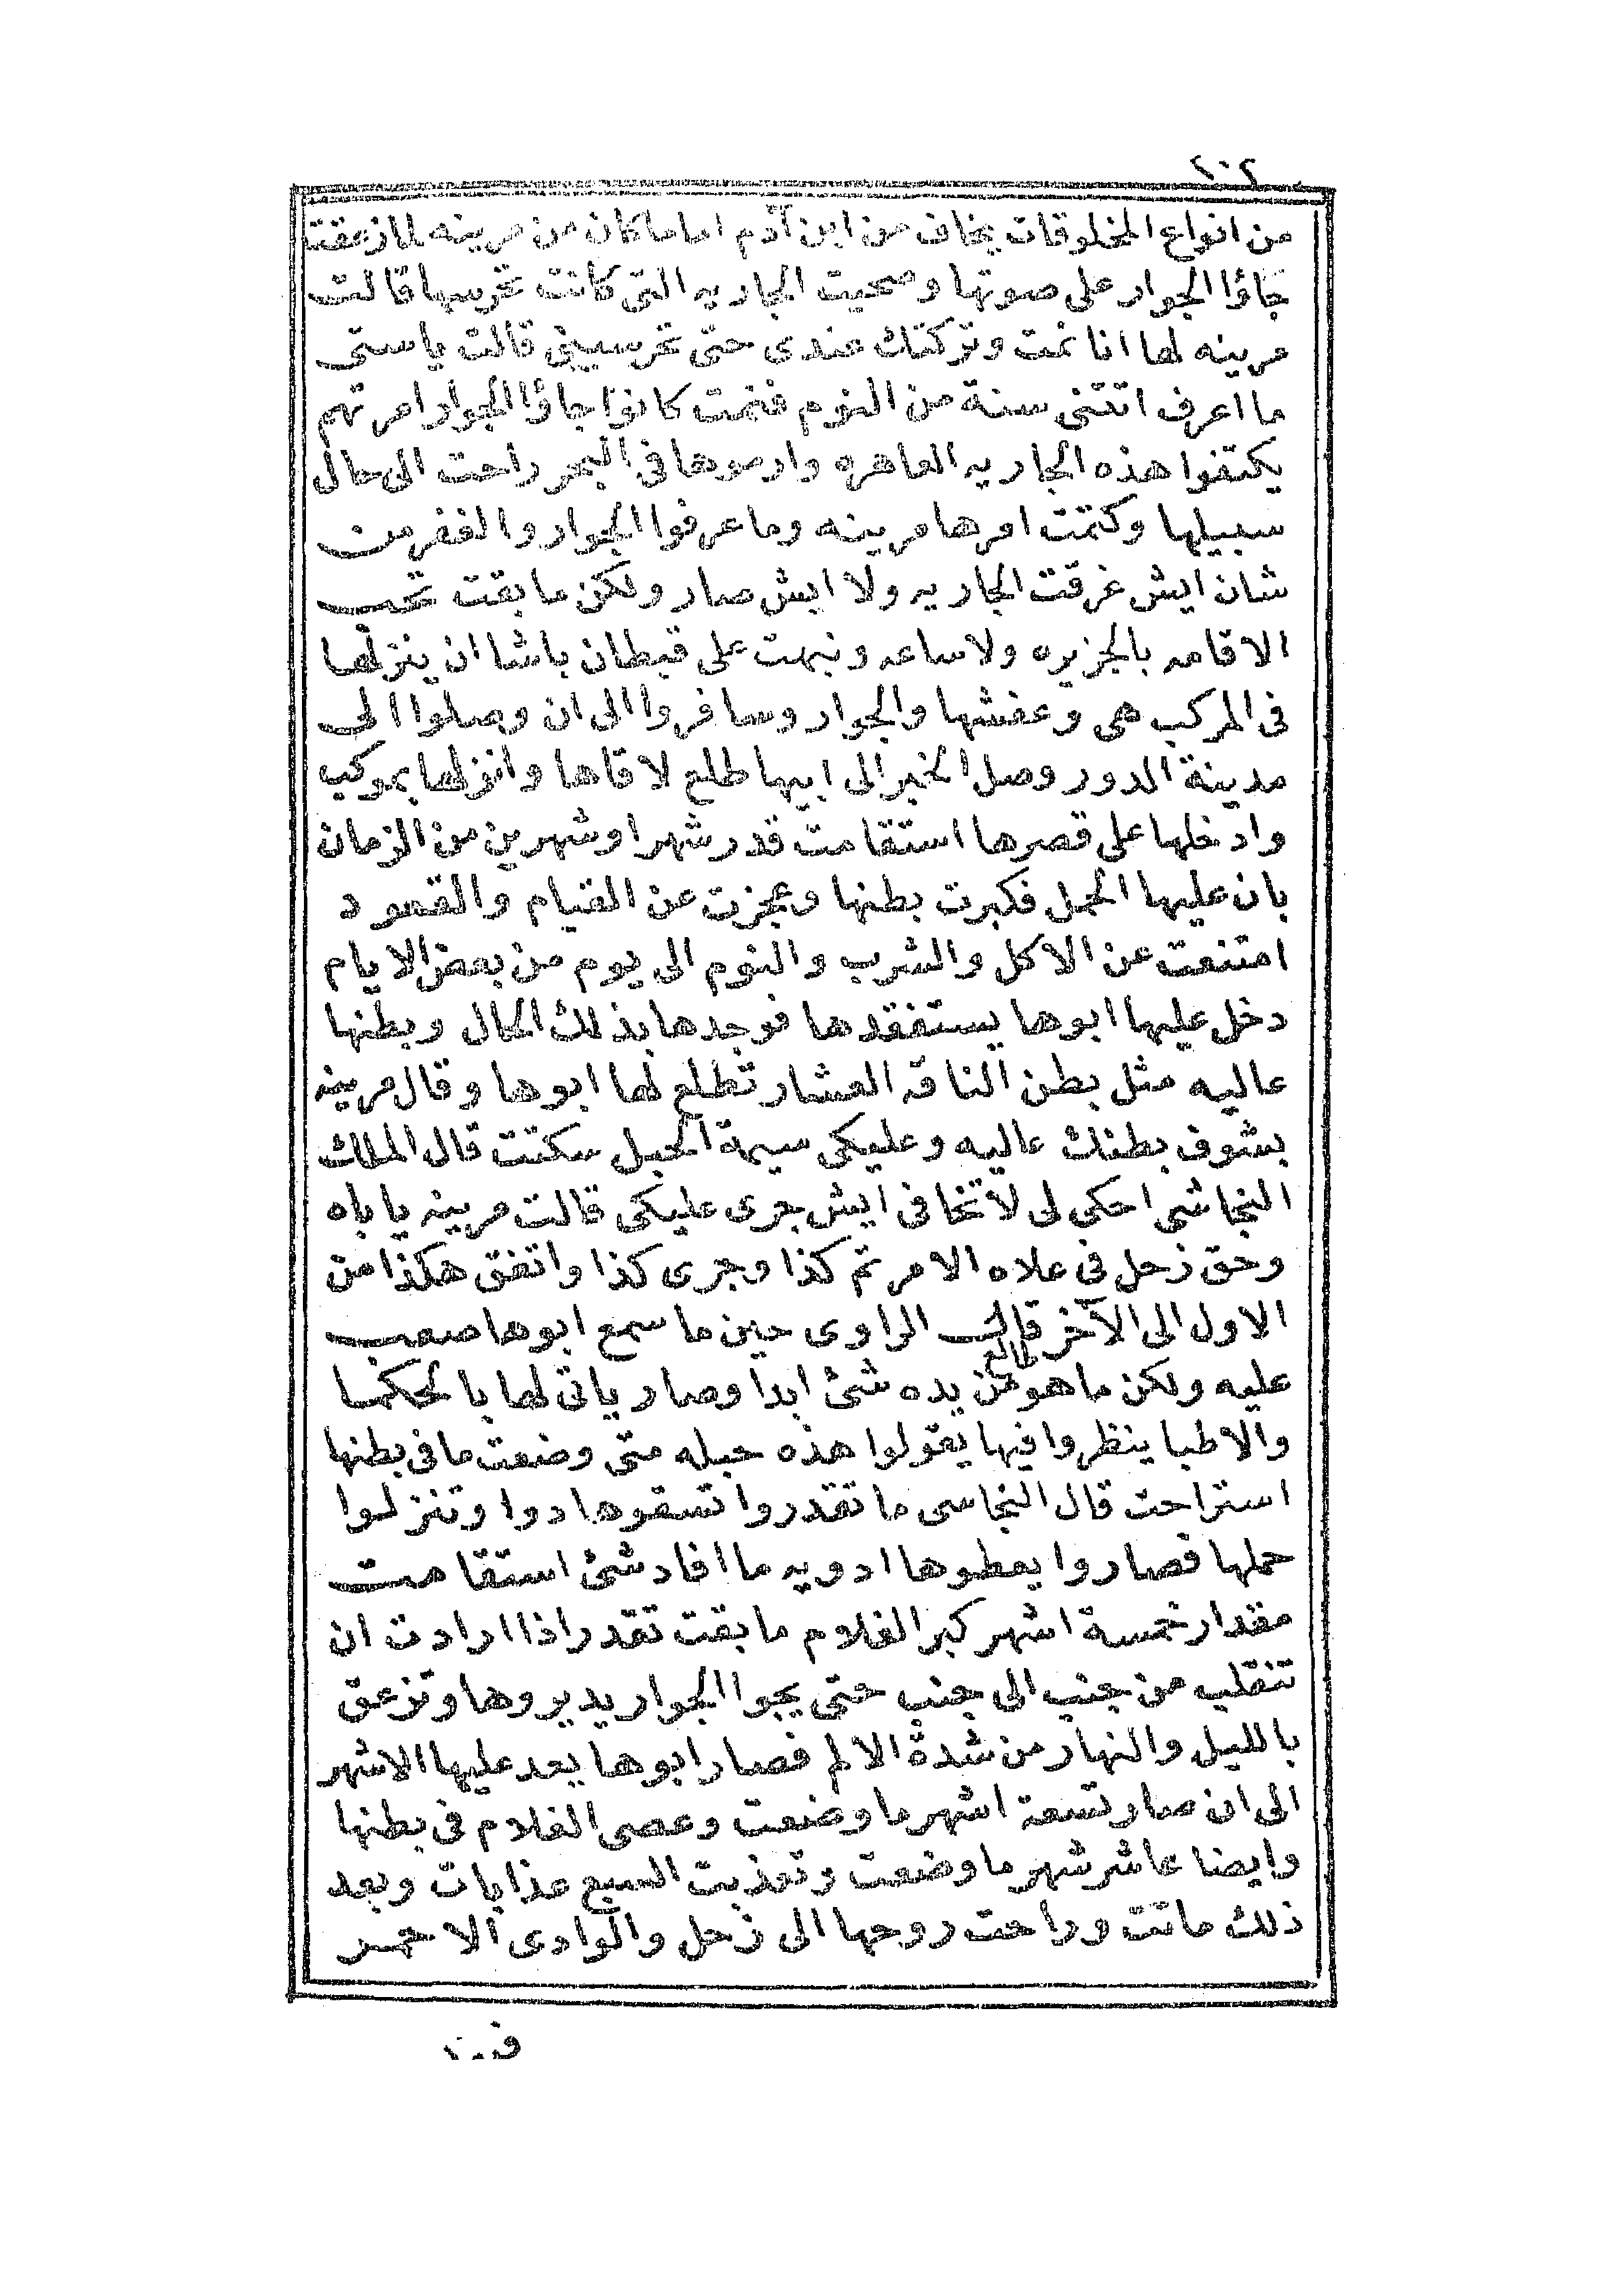 من انواع المخلوقات يخاف من ابن آدم اماما كان من مرينه لما زعقت
جاؤا الجوار على صوتها وصحيت الجاريه التى كانت تحرسها قالت
مرينه لها انا نمت وتركتك عندى حتى تحرسينى قالت ياستى
ما اعرف اتتنى سنة من النوم فنمت كانوا جاؤا الجوار امرتهم
يكتفوا هذه الجاريه العاهره وارموها فى البحر راحت الى حال
سبيلها وكتمت امرها مرينه وما عرفوا الجوار والغفر من
شان ايش غرقت الجاريه ولا ايش صار ولكن ما بقت تحب
الاقامه بالجزيره ولا ساعه ونبهت على قبطان باشا ان ينزلها
فى المركب هى وعفشها والجوار وسافروا الى ان وصلوا الى
مدينة الدور وصل الخبر الى ابيها طلع لاقاها وانزلها بموكب
وادخلها على قصرها استقامت قدر شهرا وشهرين من الزمان
بان عليها الحمل فكبرت بطنها وعجزت عن القيام والقعود
امتنعت عن الاكل والشرب والنوم الى يوم من بعض الايام
دخل عليها ابوها يستفقدها فوجدها بذلك الحال وبطنها
عاليه مثل بطن الناقه العشار تطلع لها ابوها وقال مرينه
بشوف بطنك عاليه وعليكى سيمة الحبل سكتت قال الملك
النجاشى احكى لى لا تخافى ايش جرى عليكى قالت مرينه يا باه
وحق زحل فى علاه الامر تم كذا وجرى كذا واتفق هكذا من
الاول الى الآخر قال الراوى حين ما سمع ابوها صعب
عليه ولكن ما هو طالع من يده شئ ابدا وصار ياتى لها بالحكما
والاطبا ينظروا فيها يقولوا هذه حبله متى وضعت ما فى بطنها
استراحت قال النجاسى ما تقدروا تسقوها دوا وتنزلوا
حملها فصاروا يعطوها ادويه ما افاد شئ استقامت
مقدار خمسة اشهر كبر الغلام ما بقت تقدر اذا ارادت ان
تنقلب من جنب الى جنب حتى يجوا الجوار يديروها وتزعق
بالليل والنهار من شدة الالم فصار ابوها يعد عليها الاشهر
الى ان صار تسعة اشهر ما وضعت وعصى الغلام فى بطنها
وايضا عاشر شهر ما وضعت وتعذبت السبع عذابات وبعد
ذلك ماتت وراحت روحها الى زحل والوادى الاحمر